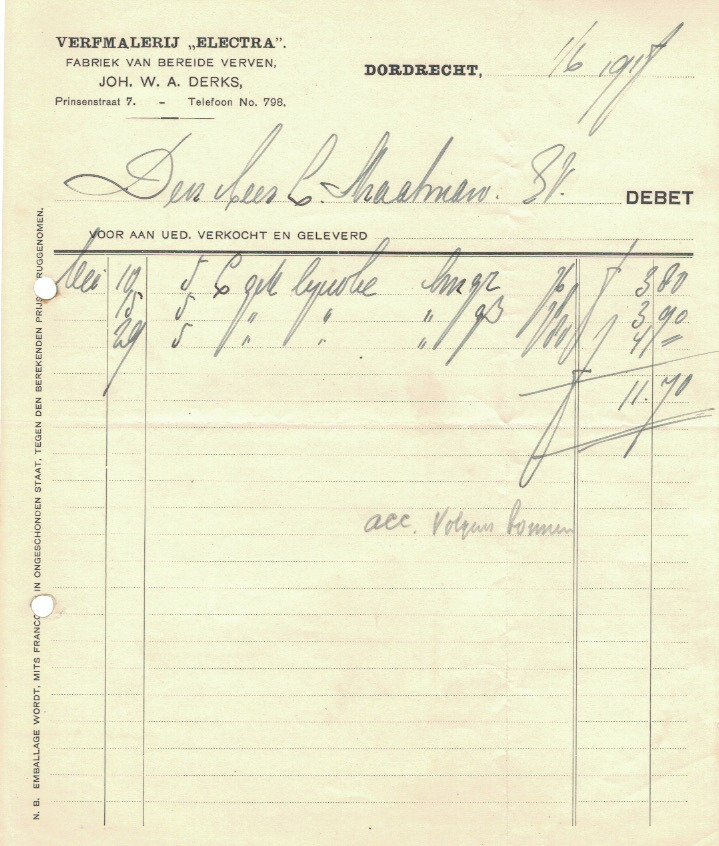 VERFMALERIJ „ELECTRA”.
FABRIEK VAN BEREIDE VERVEN,
JOH. W. A. DERKS,
Prinsenstraat 7. - Telefoon No. 798.
DORDRECHT, 1/6 191
Den Heer C. Straatman. DEBET
VOOR AAN UED. VERKOCHT EN GELEVERD
Mei 12 5 gek lijnolie 76 f 3 80
15 5 " " " 78 3 90
29 5 " " " 80 4 "
f 11.70
acc. Volgens bonnen
N. B. EMBALLAGE WORDT, MITS FRANCO IN ONGESCHONDEN STAAT, TEGEN DEN BEREKENDEN PRIJS RUGGENOMEN.